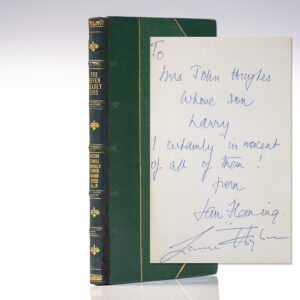 THE
SEVEN
DEADLY
SINS
To
Mrs John Hughes
whose son
Larry
I certainly innocent
of all of them !
from
Ian Fleming.